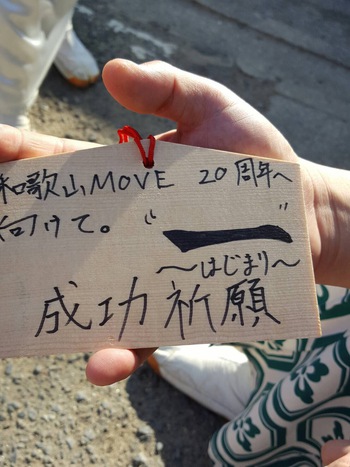 和歌山MOVE 20周年へ
向けて。 “一”
～はじまり～
成功祈願